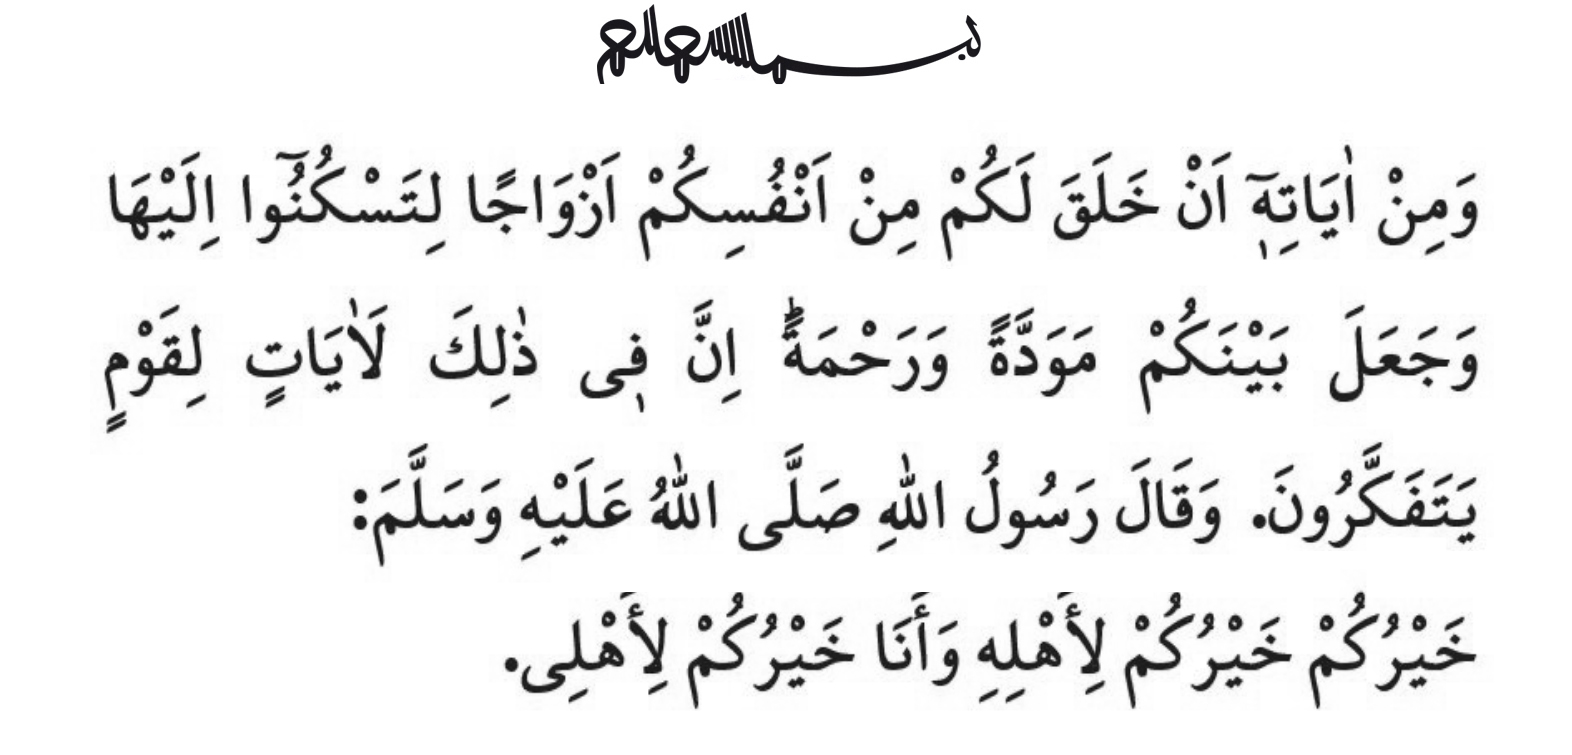 بسم الله الرحمن الرحيم
وَمِنْ اٰيَاتِهٖٓ اَنْ خَلَقَ لَكُمْ مِنْ اَنْفُسِكُمْ اَزْوَاجًا لِتَسْكُنُٓوا اِلَيْهَا
وَجَعَلَ بَيْنَكُمْ مَوَدَّةً وَرَحْمَةًۜ اِنَّ فٖى ذٰلِكَ لَاٰيَاتٍ لِقَوْمٍ
يَتَفَكَّرُونَ. وَقَالَ رَسُولُ اللّٰهِ صَلَّى اللّٰهُ عَلَيْهِ وَسَلَّمَ:
خَيْرُكُمْ خَيْرُكُمْ لِأَهْلِهِ وَأَنَا خَيْرُكُمْ لِأَهْلِى.